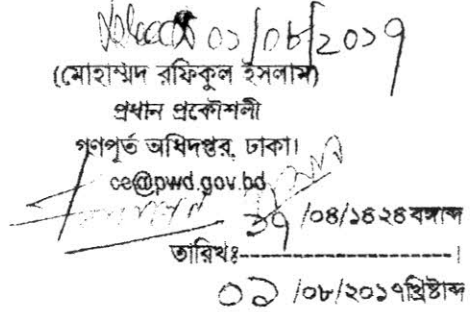 ০১/০৮/২০১৭
(মোহাম্মদ রফিকুল ইসলাম)
প্রধান প্রকৌশলী
গণপূর্ত অধিদপ্তর, ঢাকা।
ce@pwd.gov.bd
১৭ /০৪/১৪২৪ বঙ্গাব্দ
তারিখঃ-------------------------।
০১ /০৮/২০১৭খ্রিষ্টাব্দ